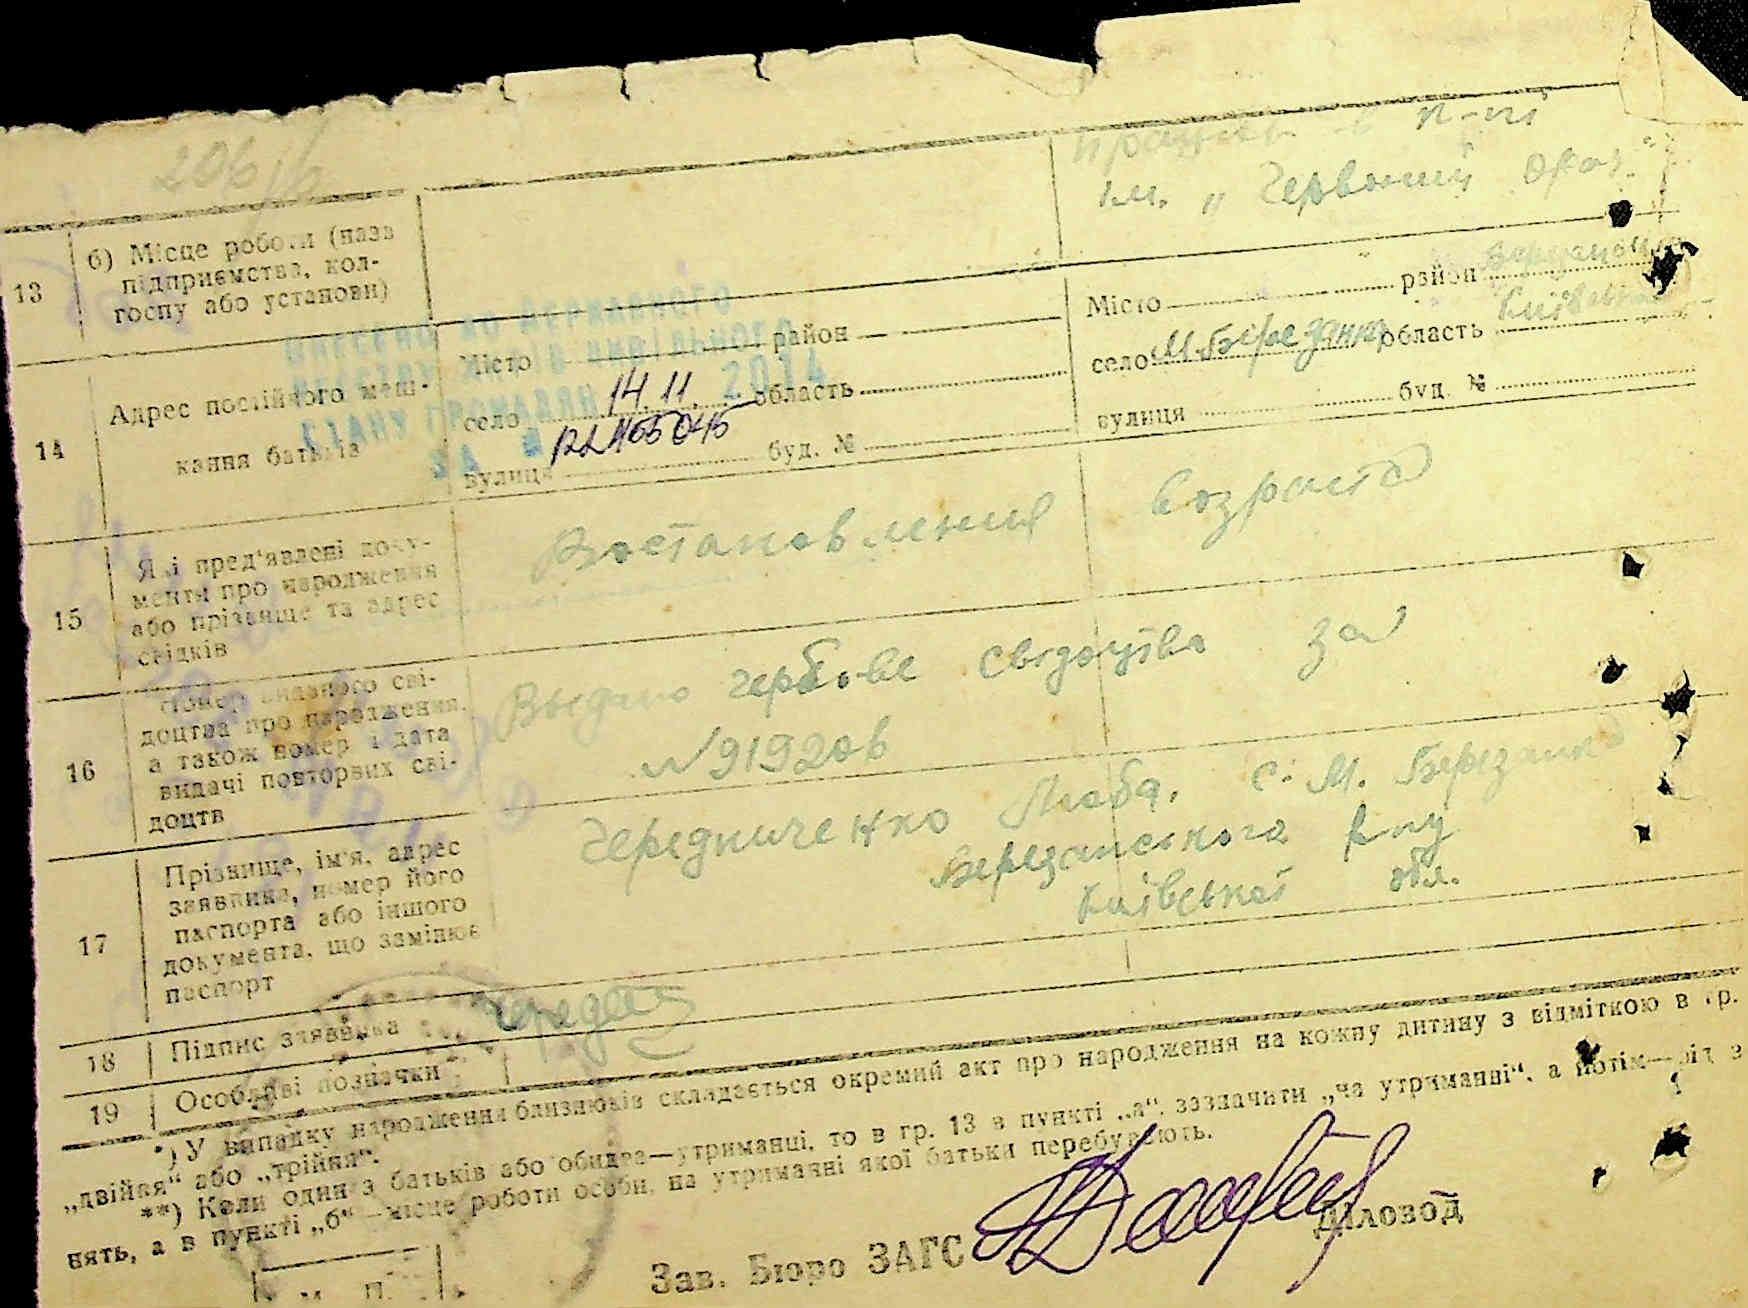 206
13
б) Місце роботи (назв
підприємства, кол-
госпу або установи)
працює в к-пі
ім. „Червоний
14
Адрес постійного меш-
кання батьків
Місто район
село область
вулиця буд. №
ВНЕСЕНО ДО ДЕРЖАВНОГО
РЕЄСТРУ АКТІВ ЦИВІЛЬНОГО
СТАНУ ГРОМАДЯН
14.11. 2014
ЗА №
Місто район
село М-Березанка область Київська
вулиця буд. №
15
Які пред'явлені доку-
менти про народження
або прізвище та адрес
свідків
Востановления возраста
16
Номер виданого сві-
доцтва про народження,
а також номер і дата
видачі повторних сві-
доцтв
Видано гербове свидоцтво за
№919206
17
Прізвище, ім'я, адрес
заявника, номер його
паспорта або іншого
документа, що замінює
паспорт
Чередниченко Люба, с. М. Березанка
Березанського р-ну
Київської обл.
18 Підпис заявника
19 Особливі позначки
*) У випадку народження близнюків складається окремий акт про народження на кожну дитину з відміткою в гр.
„двійня“ або „трійня“.
**) Коли один з батьків або обидва—утриманці, то в гр. 13 в пункті „а“ зазначити „на утриманні“, а потім—рід з
нять, а в пункті „б“—місце роботи особи, на утриманні якої батьки перебувають.
М. П.
Зав. Бюро ЗАГС Діловод